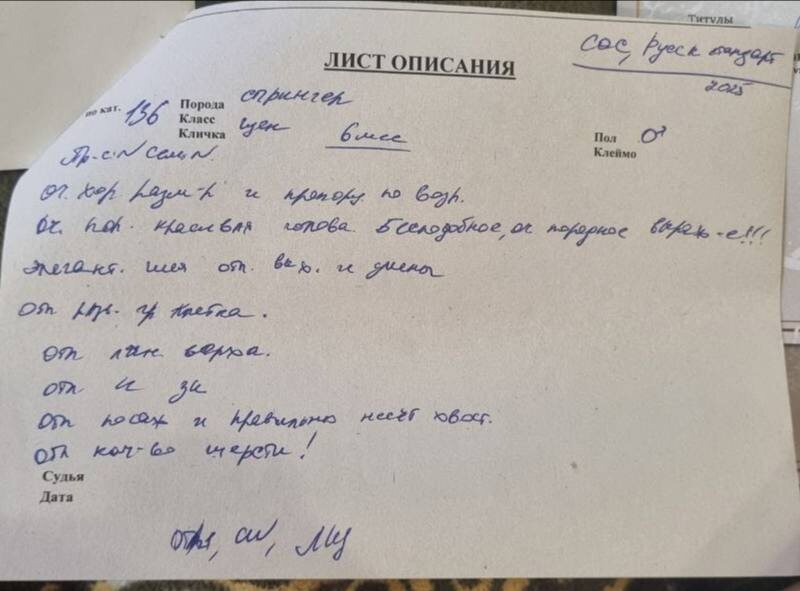 Титулы
ЛИСТ ОПИСАНИЯ
САС, Русск стандарт
2025
по кат. 136
Порода спрингер
Класс щен 6 мес
Кличка
Пол ♂
Клеймо
Оч. хор. разм-р и пропорц. по возр.
Оч. пор. красивая голова. Бесподобное, оч породное выраж-е!!!
Элегант. шея отп. вых. и длины
Отл разв. гр клетка.
Отл лин. верха.
Отл и зк
Отл посаж и правильно несёт хвост.
Отл кач-во шерсти!
Судья
Дата
ЛЩ